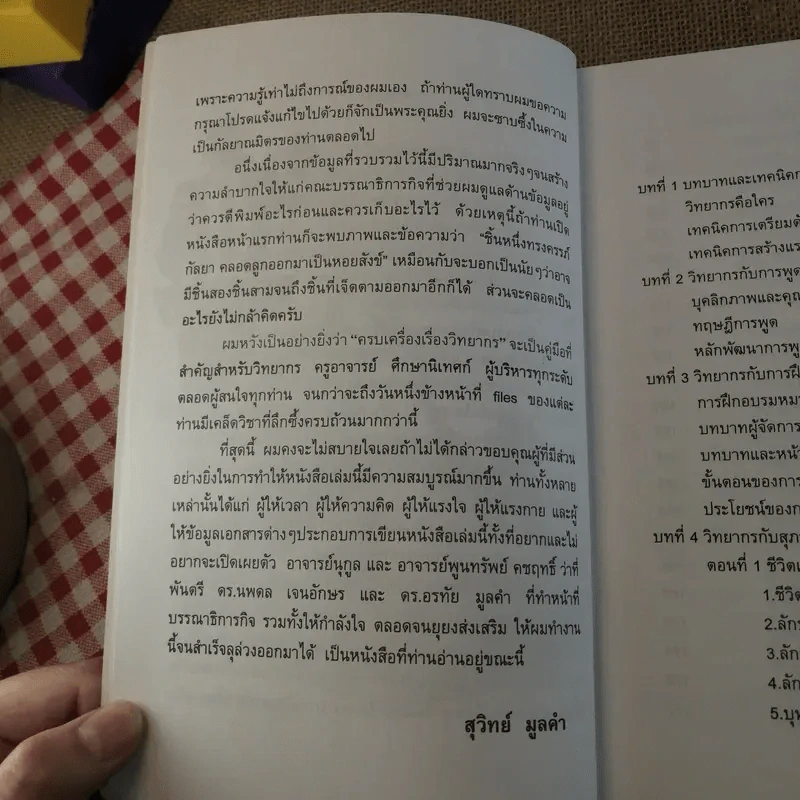 เพราะความรู้เท่าไม่ถึงการณ์ของผมเอง ถ้าท่านผู้ใดทราบผมขอความ
กรุณาโปรดแจ้งแก้ไขไปด้วยก็จักเป็นพระคุณยิ่ง ผมจะซาบซึ้งในความ
เป็นกัลยาณมิตรของท่านตลอดไป
อนึ่งเนื่องจากข้อมูลที่รวบรวมไว้นี้มีปริมาณมากจริงๆจนสร้าง
ความลำบากใจให้แก่คณะบรรณาธิการกิจที่ช่วยผมดูแลด้านข้อมูลอยู่
ว่าควรตีพิมพ์อะไรก่อนและควรเก็บอะไรไว้ ด้วยเหตุนี้ถ้าท่านเปิด
หนังสือหน้าแรกท่านก็จะพบภาพและข้อความว่า “ชิ้นหนึ่งทรงครรภ์
กัลยา คลอดลูกออกมาเป็นหอยสังข์” เหมือนกับจะบอกเป็นนัยๆว่าอาจ
มีชิ้นสองชิ้นสามจนถึงชิ้นที่เจ็ดตามออกมาอีกก็ได้ ส่วนจะคลอดเป็น
อะไรยังไม่กล้าคิดครับ
ผมหวังเป็นอย่างยิ่งว่า “ครบเครื่องเรื่องวิทยากร” จะเป็นคู่มือที่
สำคัญสำหรับวิทยากร ครูอาจารย์ ศึกษานิเทศก์ ผู้บริหารทุกระดับ
ตลอดผู้สนใจทุกท่าน จนกว่าจะถึงวันหนึ่งข้างหน้าที่ files ของแต่ละ
ท่านมีเคล็ดวิชาที่ลึกซึ้งครบถ้วนมากกว่านี้
ที่สุดนี้ ผมคงจะไม่สบายใจเลยถ้าไม่ได้กล่าวขอบคุณผู้ที่มีส่วน
อย่างยิ่งในการทำให้หนังสือเล่มนี้มีความสมบูรณ์มากขึ้น ท่านทั้งหลาย
เหล่านั้นได้แก่ ผู้ให้เวลา ผู้ให้ความคิด ผู้ให้แรงใจ ผู้ให้แรงกาย และผู้
ให้ข้อมูลเอกสารต่างๆประกอบการเขียนหนังสือเล่มนี้ทั้งที่อยากและไม่
อยากจะเปิดเผยตัว อาจารย์นุกูล และ อาจารย์พูนทรัพย์ คชฤทธิ์ ว่าที่
พันตรี ดร.นพดล เจนอักษร และ ดร.อรทัย มูลคำ ที่ทำหน้าที่
บรรณาธิการกิจ รวมทั้งให้กำลังใจ ตลอดจนยุยงส่งเสริม ให้ผมทำงาน
นี้จนสำเร็จลุล่วงออกมาได้ เป็นหนังสือที่ท่านอ่านอยู่ขณะนี้
สุวิทย์ มูลคำ
บทที่ 1 บทบาทและเทคนิคก
วิทยากรคือใคร
เทคนิคการเตรียมตั
เทคนิคการสร้างแร
บทที่ 2 วิทยากรกับการพูด
บุคลิกภาพและคุณ
ทฤษฎีการพูด
หลักพัฒนาการพู
บทที่ 3 วิทยากรกับการฝึ
การฝึกอบรมหม
บทบาทผู้จัดการ
บทบาทและหน้
ขั้นตอนของการ
ประโยชน์ของก
บทที่ 4 วิทยากรกับสุภ
ตอนที่ 1 ชีวิต
1.ชีวิ
2.ลัก
3.ลัก
4.ลัก
5.บุ